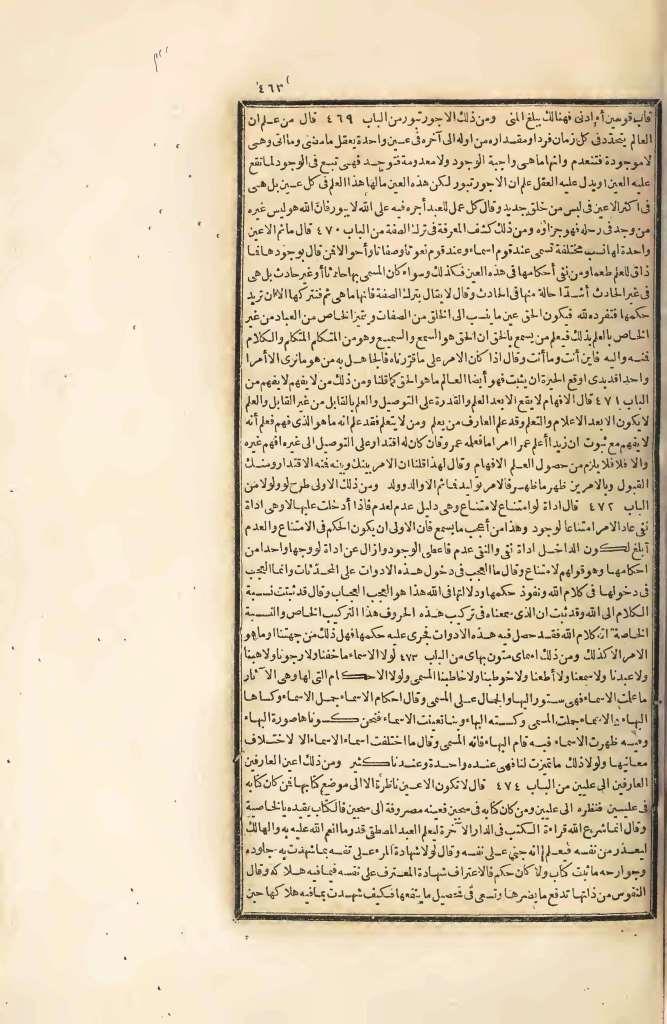 ٤٦٣
قاب قوسين أو أدنى فهنالك يبلغ المنى ومن ذلك الاجور تبور من الباب ٤٦٩ قال من علم ان
العالم يتجدد فى كل زمان فرد او مقداره من اوله الى آخره فى عين واحدة يعقل ما مضى وما اتى وهى
لا موجودة فتنعدم وانها ماهى واجبة الوجود ولا معدومة فتوجد فهى تبع فى الوجود لما تقع
عليه العين او يدل عليه العقل علم ان الاجور تبور لكن هذه العين مالها هذا العلم فى كل عين بل هى
فى اكثر الاعين فى لبس من خلق جديد وقال كل عمل للعبد أجره فيه على الله لا يبور فان الله هو ليس غيره
من وجد فى رحله فهو جزاؤه ومن ذلك كشف المعرفة فى ترك الصفة من الباب ٤٧٠ قال ما ثم الاعين
واحدة لها نسب مختلفة تسمى عند قوم اسماء وعند قوم نعوتا وصفات وأحوالا فمن قال بوجودها فما
ذاق للعلم طعما ومن نفى أحكامها فى هذه العين فكذلك وسواء كان المسمى بها حادثا أو غير حادث بل هى
فى غير الحادث أشد احالة منها فى الحادث وقال لا يقال بترك الصفة فانها ماهى ثم فتتركها الا ان تريد
حكمها فتفرده لله فيكون الحق عين ما ينسب الى الخلق من الصفات ويتميز الخاص من العباد من غير
الخاص بالعلم بذلك فيعلم من يسمع بالحق ان الحق هو السمع والسميع وهو من المتكلم المتكلم والكلام
فمنه واليه فاين أنت وما أنت وقال اذا كان الامر على ما قررناه فالجاهل به من هو ما نرى الا أمرا
واحدا قد يدى اوقع الحيرة ان يثبت فهو أيضا العالم ماهو الحق كما قلنا ومن ذلك من لا يفهم لا يفهم من
الباب ٤٧١ قال الافهام لا يقع الا بعد العلم والقدرة على التوصيل والعلم بالقابل من غير القابل والعلم
لا يكون الا بعد الاعلام والتعلم وقد علم العارف من يعلم ومن لا يتعلم فقد علم انه ماهو الذى فهم فعلم أنه
لا يفهم مع ثبوت ان زيدا أعلم عمرا امرا ما فعلمه عمر وفان كان له اقتدار على التوصيل الى غيره افهم غيره
والا فلا فلا يلزم من حصول العلم الافهام وقال لهذا قلنا ان الامر بينك وبينه فمنه الاقتدار ومنك
القبول وبالامرين ظهر ما ظهر فالامر توليد فما ثم الا والد وولد ومن ذلك الاولى طرح لو ولولا من
الباب ٤٧٢ قال اداة لو امتناع لامتناع وهى دليل عدم لعدم فاذا أدخلت عليها لا وهى اداة
نفى عاد الامر امتناعا لوجود وهذا من أعجب ما يسمع فان الاولى ان يكون الحكم فى الامتناع والعدم
أبلغ لكون الداخل اداة نفى والنفى عدم فاعطى الوجود وازال عن اداة لو وجها واحدا من
احكامها وهو قولهم لامتناع وقال ما العجب فى دخول هذه الادوات على المحدثات وانما العجب
فى دخولها فى كلام الله ونفوذ حكمها ودلالتها فى الله هذا هو العجب العجاب وقال قد ثبتت نسبة
الكلام الى الله وقد ثبت ان الذى سمعناه فى تركيب هذه الحروف هذا التركيب الخاص والنسبة
الخاصة انه كلام الله فقد حصل فيه هذه الادوات فجرى عليه حكمها فهل ذلك من جهتنا او ما هو
الامر الا كذلك ومن ذلك اسماى ستون بهاى من الباب ٤٧٣ لولا الاسماء ما خفنا ولا رجونا ولا هبنا
ولا عبدنا ولا سمعنا ولا أطعنا ولا خوطبنا ولا خاطبنا المسمى ولولا الاحكام التى لها وهى الآثار
ما علمت الاسماء فهى ستور البها والجمال على المسمى وقال احكام الاسماء جمل الاسماء وكساها
البهاء والاسماء جملت المسمى وكسته البهاء وبنا تعينت الاسماء فنحن كسوناها صورة البهاء
وفيه ظهرت الاسماء فبه قام البهاء فانه المسمى وقال ما اختلفت اسماء الاسماء الا لاختلاف
معانيها ولولا ذلك ما تميزت لنا فهى عنده واحدة وعندنا كثير ومن ذلك اعين العارفين
العارفين الى عليين من الباب ٤٧٤ قال لا تكون الاعين ناظرة الا الى موضع كتابها فمن كان كتابه
فى عليين فنظره الى عليين ومن كان كتابه فى سجين فعينه مصروفة الى سجين فالكتاب يقيده بالخاصية
وقال انما شرع الله قراءة الكتب فى الدار الآخرة ليعلم العبد المصطفى قدر ما انعم الله عليه به والهالك
ليعذر من نفسه فيعلم انه جنى على نفسه وقال لولا شهادة المرء على نفسه بما شهدت به جلوده
وجوارحه ما ثبت كتاب ولا كان حكم فالاعتراف شهادة المعترف على نفسه فما فيه هلاكه وقال
النفوس من ذاتها تدفع ما يضرها وتسعى فى تحصيل ما ينفعها فكيف شهدت بما فيه هلاكها حين